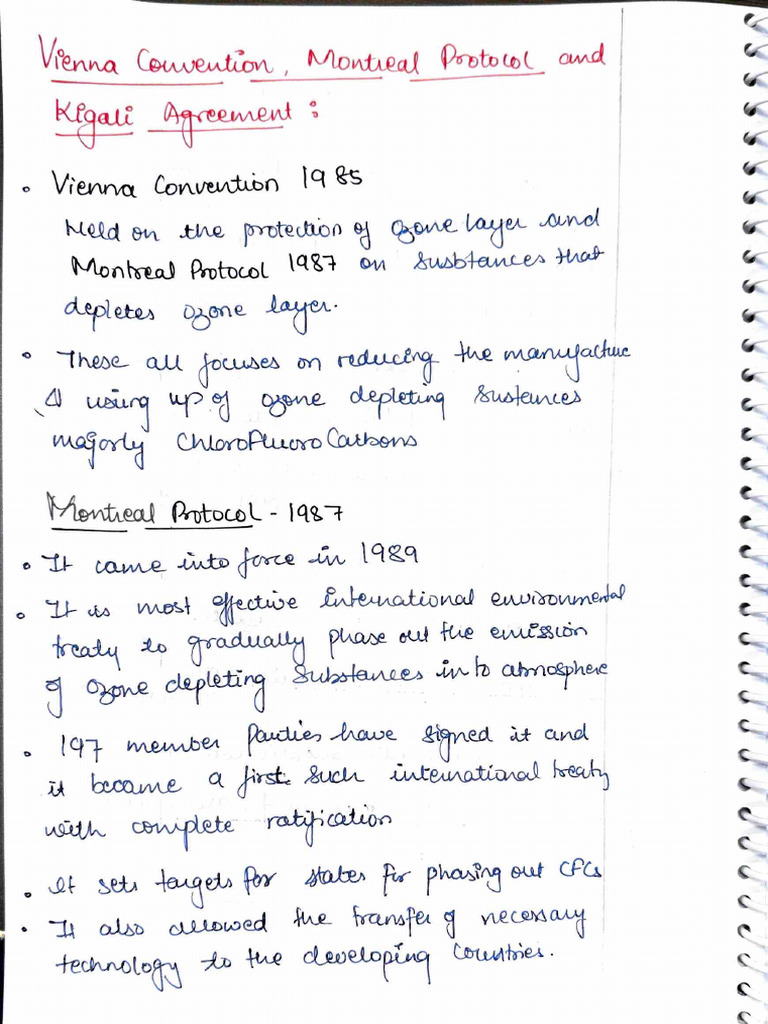 Vienna Convention, Montreal Protocol and
Kigali Agreement :
• Vienna Convention 1985
Held on the protection of ozone layer and
Montreal Protocol 1987 on susbtances that
depletes ozone layer.
• These all focuses on reducing the manufacture
& using up of ozone depleting sustences
majorly ChloroFluoroCarbons
Montreal Protocol - 1987
• It came into force in 1989
• It is most effective international environmental
treaty to gradually phase out the emission
of ozone depleting substances into atmosphere
• 197 member Parties have signed it and
it became a first such international treaty
with complete ratification
• It sets targets for states for phasing out CFCs
• It also allowed the transfer of necessary
technology to the developing countries.